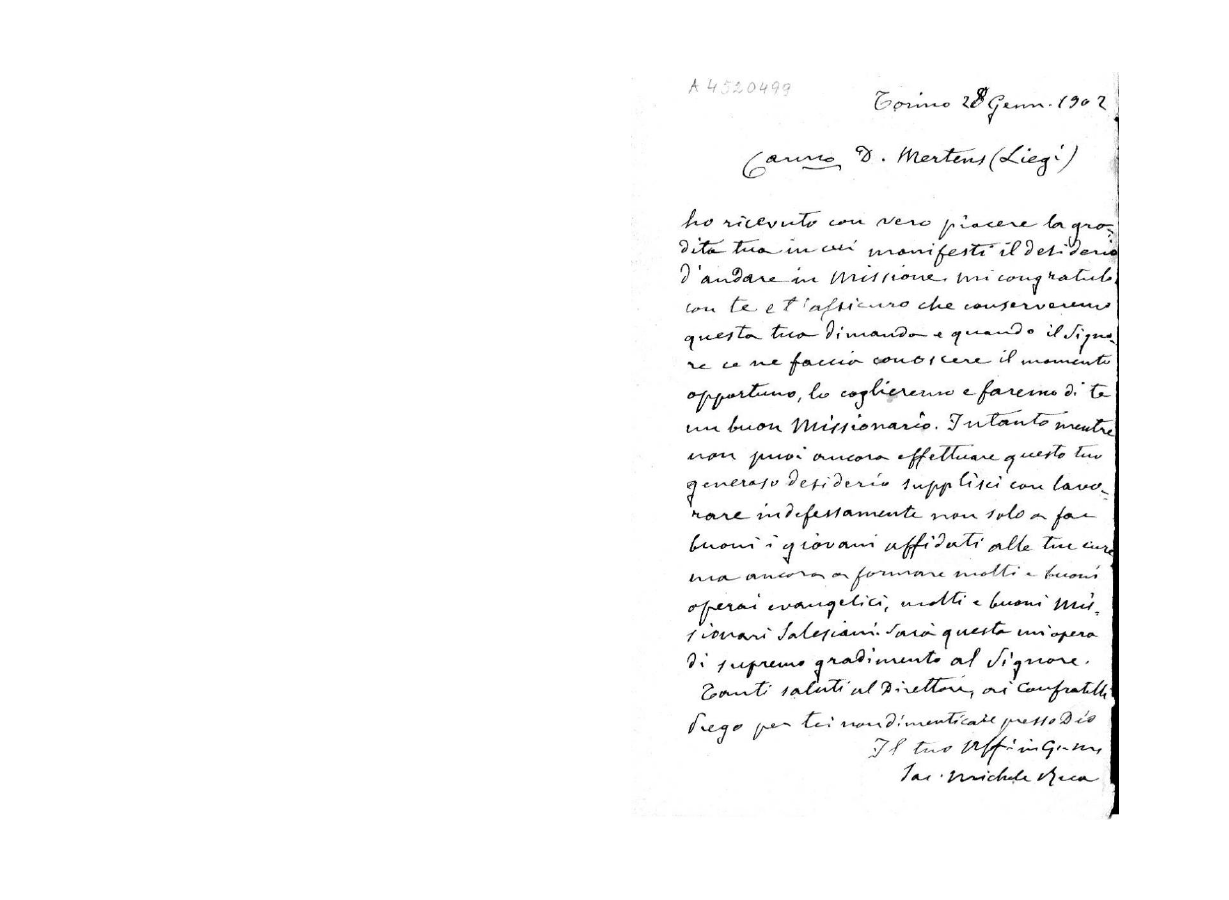 A 4520499
Torino 28 Genn. 1902
Carmo D. Mertens (Liegi)
ho ricevuto con vero piacere la gra-
dita tua in cui manifesti il desiderio
d'andare in Missione. Mi congratulo
con te e t'assicuro che conserveremo
questa tua dimanda e quando il Signo-
re ce ne faccia conoscere il momento
opportuno, lo coglieremo e faremo di te
un buon Missionario. Intanto mentre
non puoi ancora effettuare questo tuo
generoso desiderio supplisci con lavo-
rare indefessamente non solo a far
buoni i giovani affidati alle tue cure
ma ancora a formare molti e buoni
operai evangelici, molti e buoni Mis-
sionari Salesiani. Sarà questa un'opera
di supremo gradimento al Signore.
Tanti saluti al Direttore, ai Confratelli
Prego per te, non dimenticate presso Dio
Il tuo Aff. in G.
Sac. Michele Rua